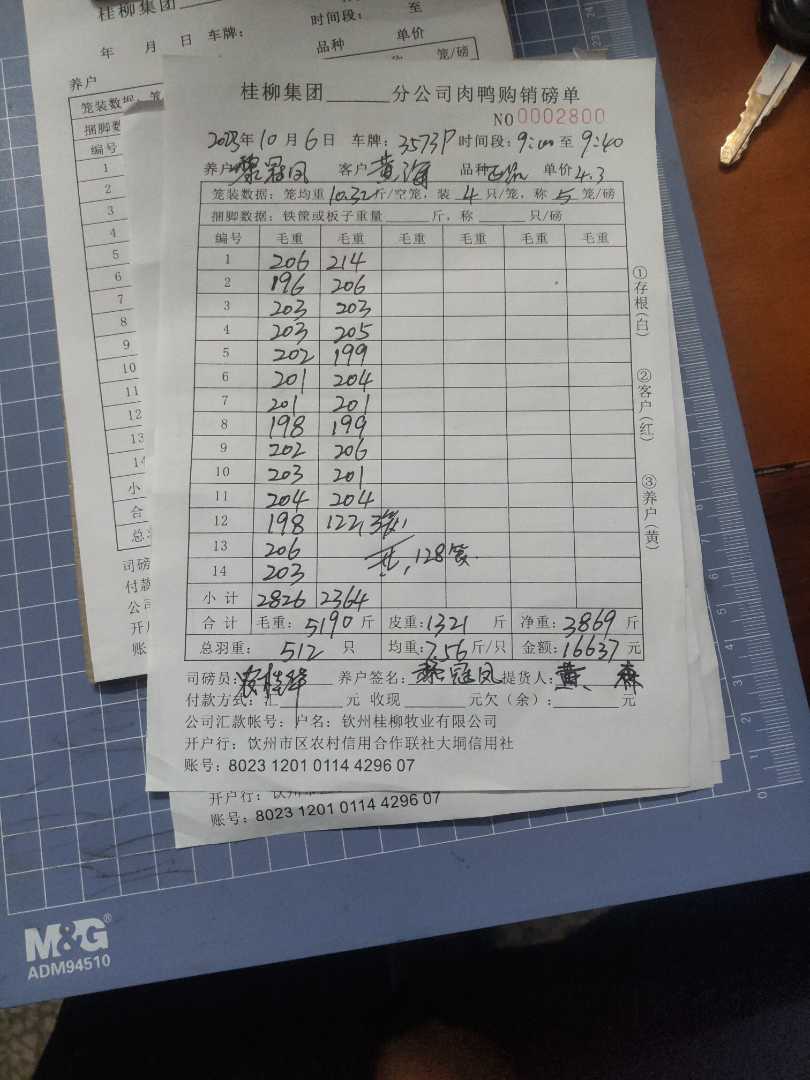 桂柳集团
时间段： 至
年 月 日 车牌：
品种 单价
养户
笼/磅
笼装数据：笼
编号
1
2
3
4
5
6
7
8
9
10
11
12
13
14
小
合
总羽
司磅
付款
公司
开户
账
桂柳集团______分公司肉鸭购销磅单
NO 0002800
2023年10月6日 车牌：3573P 时间段：9:00至9:40
养户 黎冠凤 客户 黄海 品种 正品 单价4.3
笼装数据：笼均重10.32斤/空笼，装 4 只/笼，称 5 笼/磅
捆脚数据：铁筐或板子重量______斤，称______只/磅
编号 毛重 毛重 毛重 毛重 毛重 毛重
1 206 214
2 196 206
3 203 203
4 203 205
5 202 199
6 201 204
7 201 201
8 198 199
9 202 206
10 203 201
11 204 204
12 198 122，3笼
13 206 共，128笼.
14 203
小计 2826 2364
合计 毛重：5190斤 皮重：1321 斤 净重：3869斤
总羽重： 512 只 均重：7.56斤/只 金额：16637元
司磅员： 养户签名：黎冠凤 提货人：黄 森
付款方式：汇______元 收现______元欠（余）：______元
公司汇款帐号：户名：钦州桂柳牧业有限公司
开户行：钦州市区农村信用合作联社大垌信用社
账号：8023 1201 0114 4296 07
①存根（白）
②客户（红）
③养户（黄）
开户行：钦州市
账号：8023 1201 0114 4296 07
M&G
ADM94510